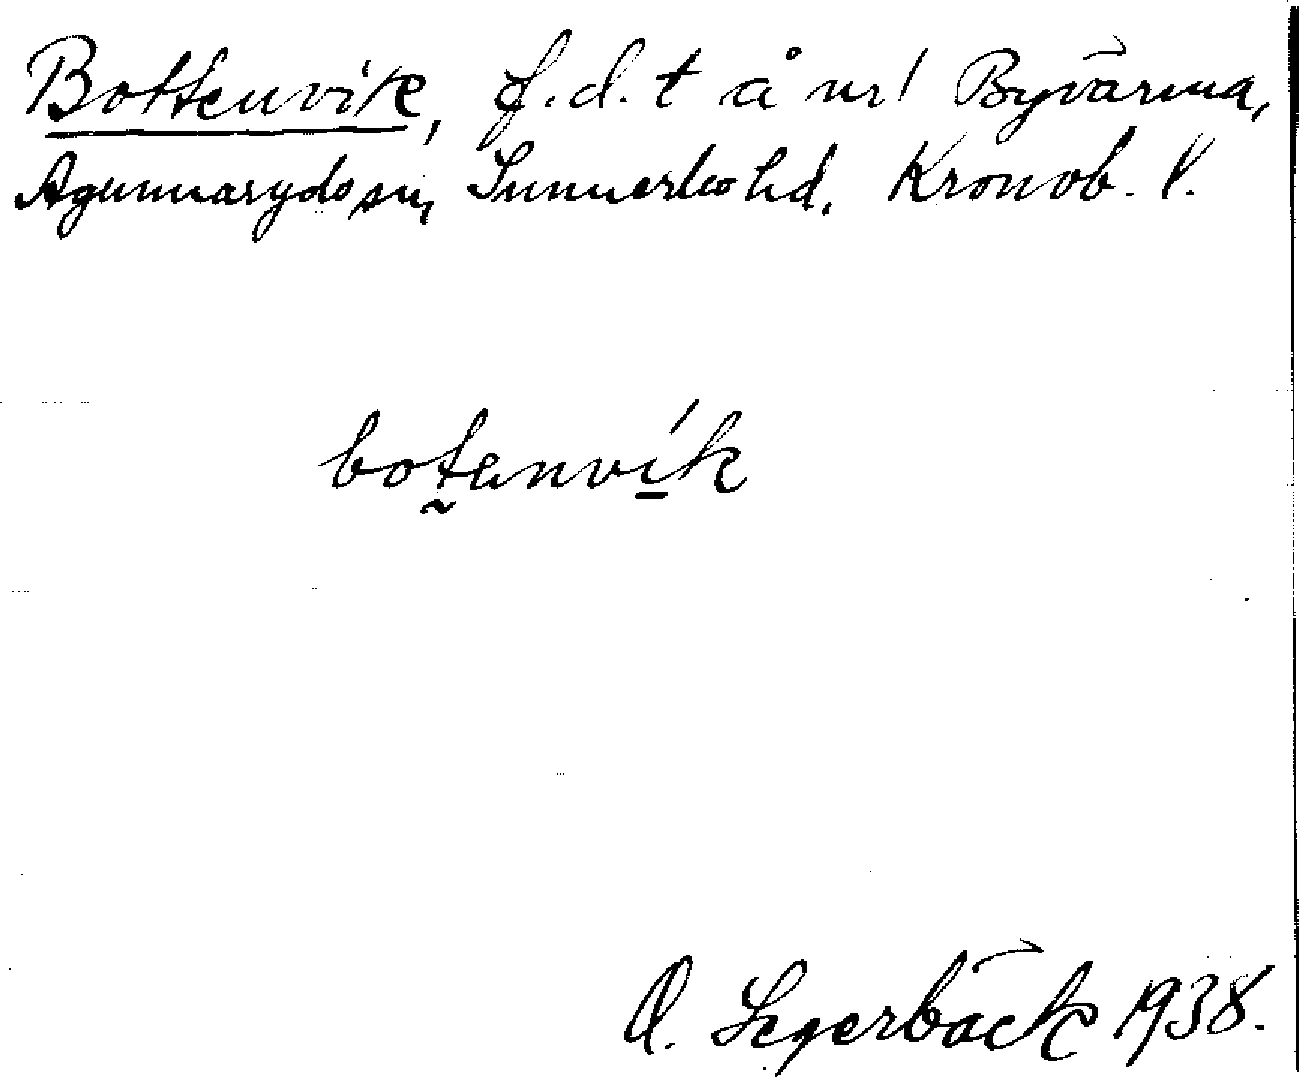 Bottenvik, f.d. t å nr 1 Byvärma,
Agunnaryds sn, Sunnerbo hd. Kronob. l.
botanvík
O. Segerbäck 1938.